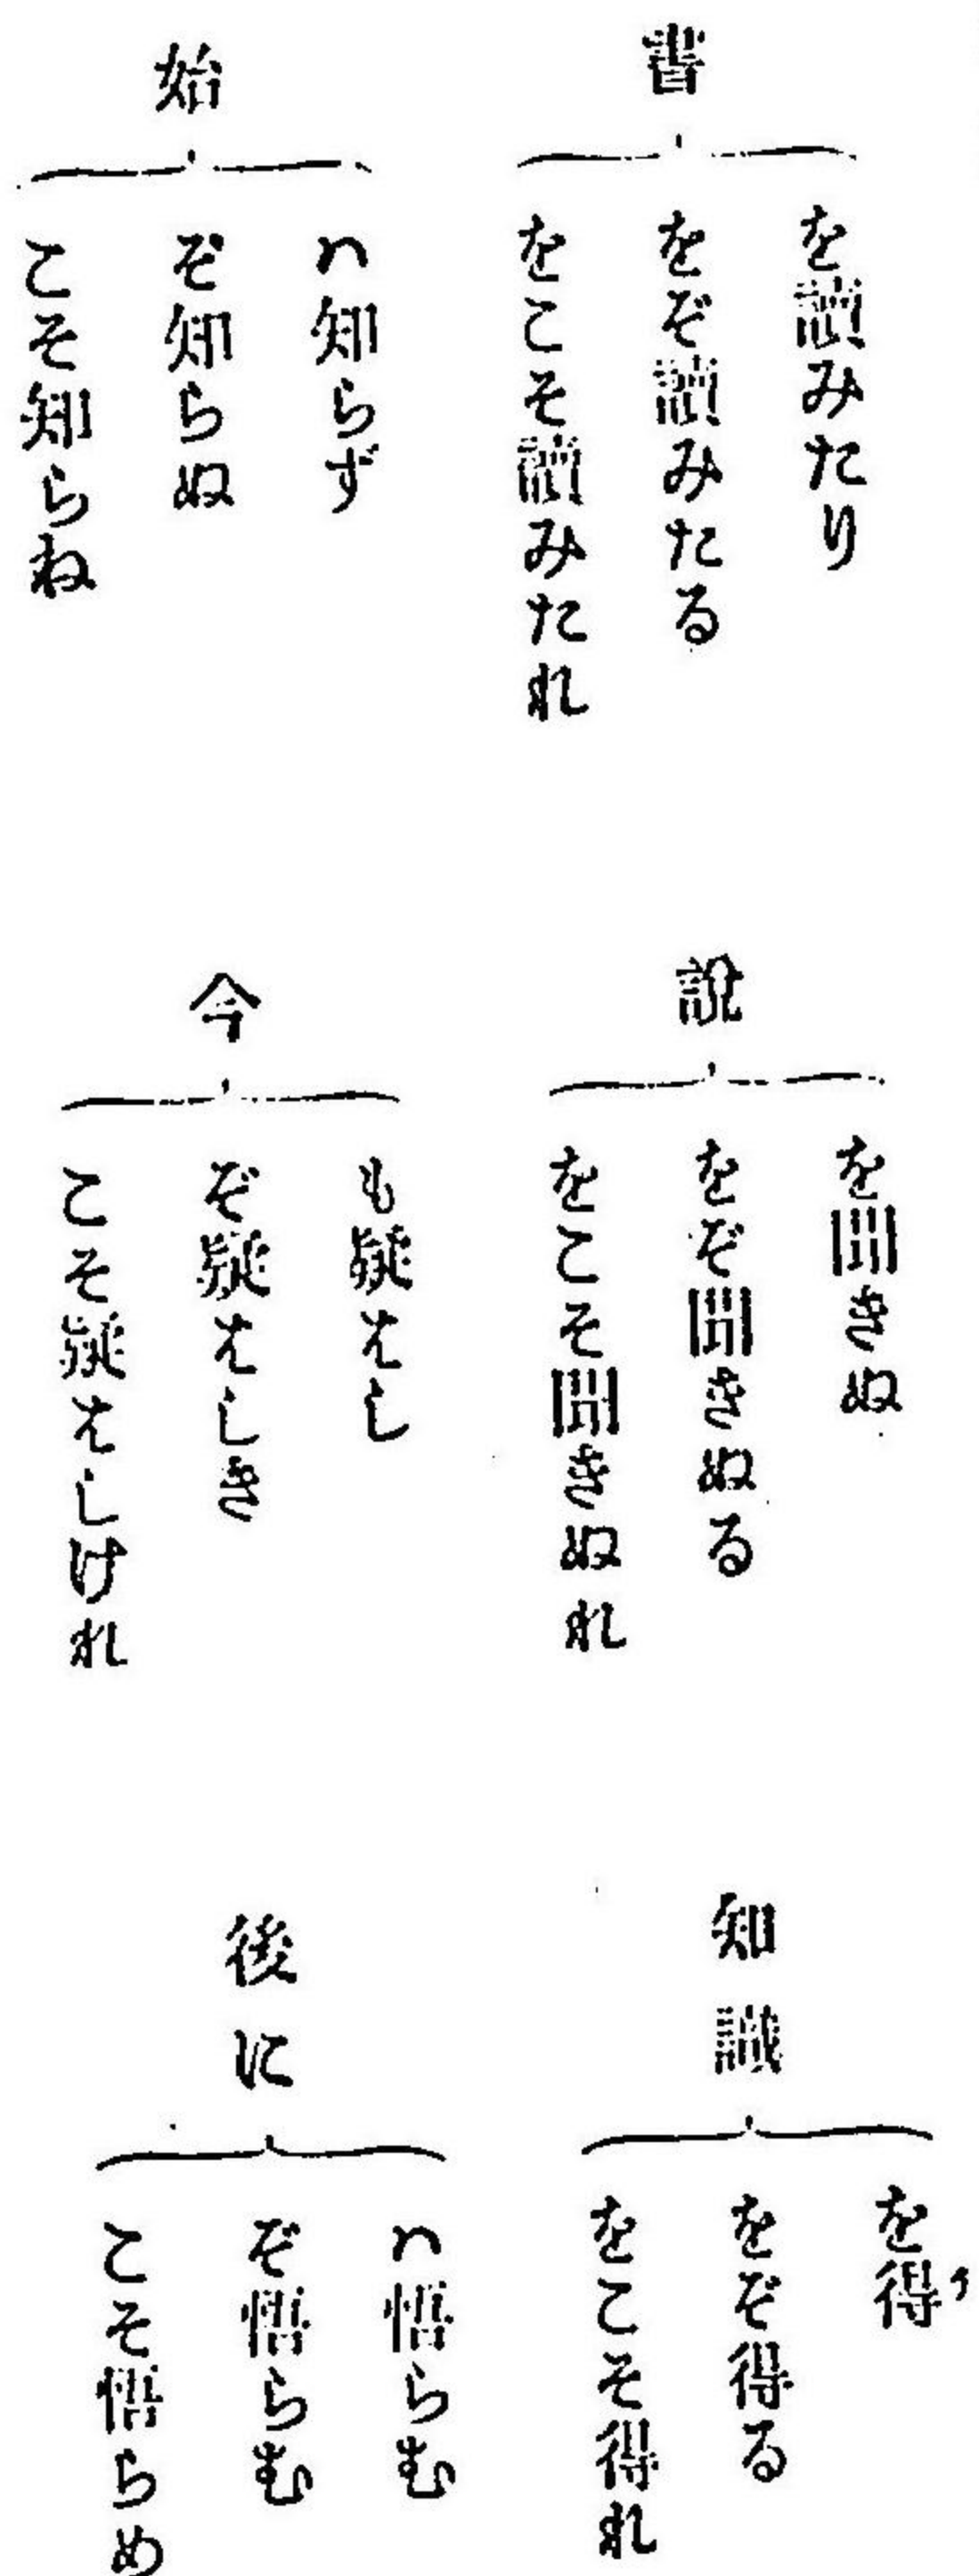 書
を讀みたり
をぞ讀みたる
をこそ讀みたれ
說
を聞きぬ
をぞ聞きぬる
をこそ聞きぬれ
知識
を得ウ
をぞ得る
をこそ得れ
始
ハ知らず
ぞ知らぬ
こそ知らね
今
も疑はし
ぞ疑はしき
こそ疑はしけれ
後に
ハ悟らむ
ぞ悟らむ
こそ悟らめ